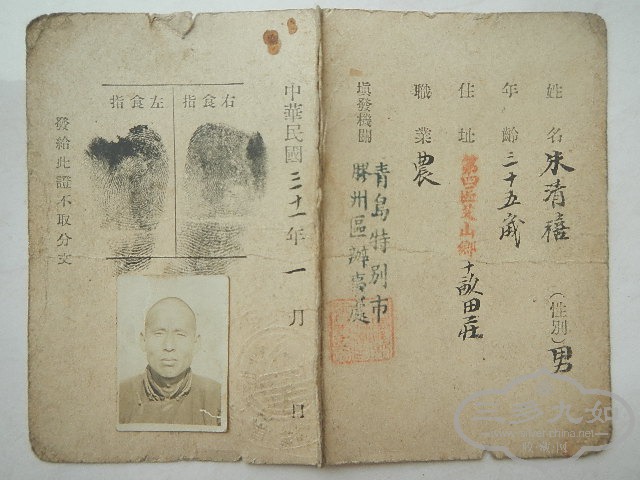 姓名 朱清禧
(性別)男
年齡 三十五歲
住址 第四區艾山鄉十畝田莊
職業 農
填發機關 青島特別市
膠州區辦事處
中華民國三十一年一月 日
右食指
左食指
發給此證不取分文
三多九如